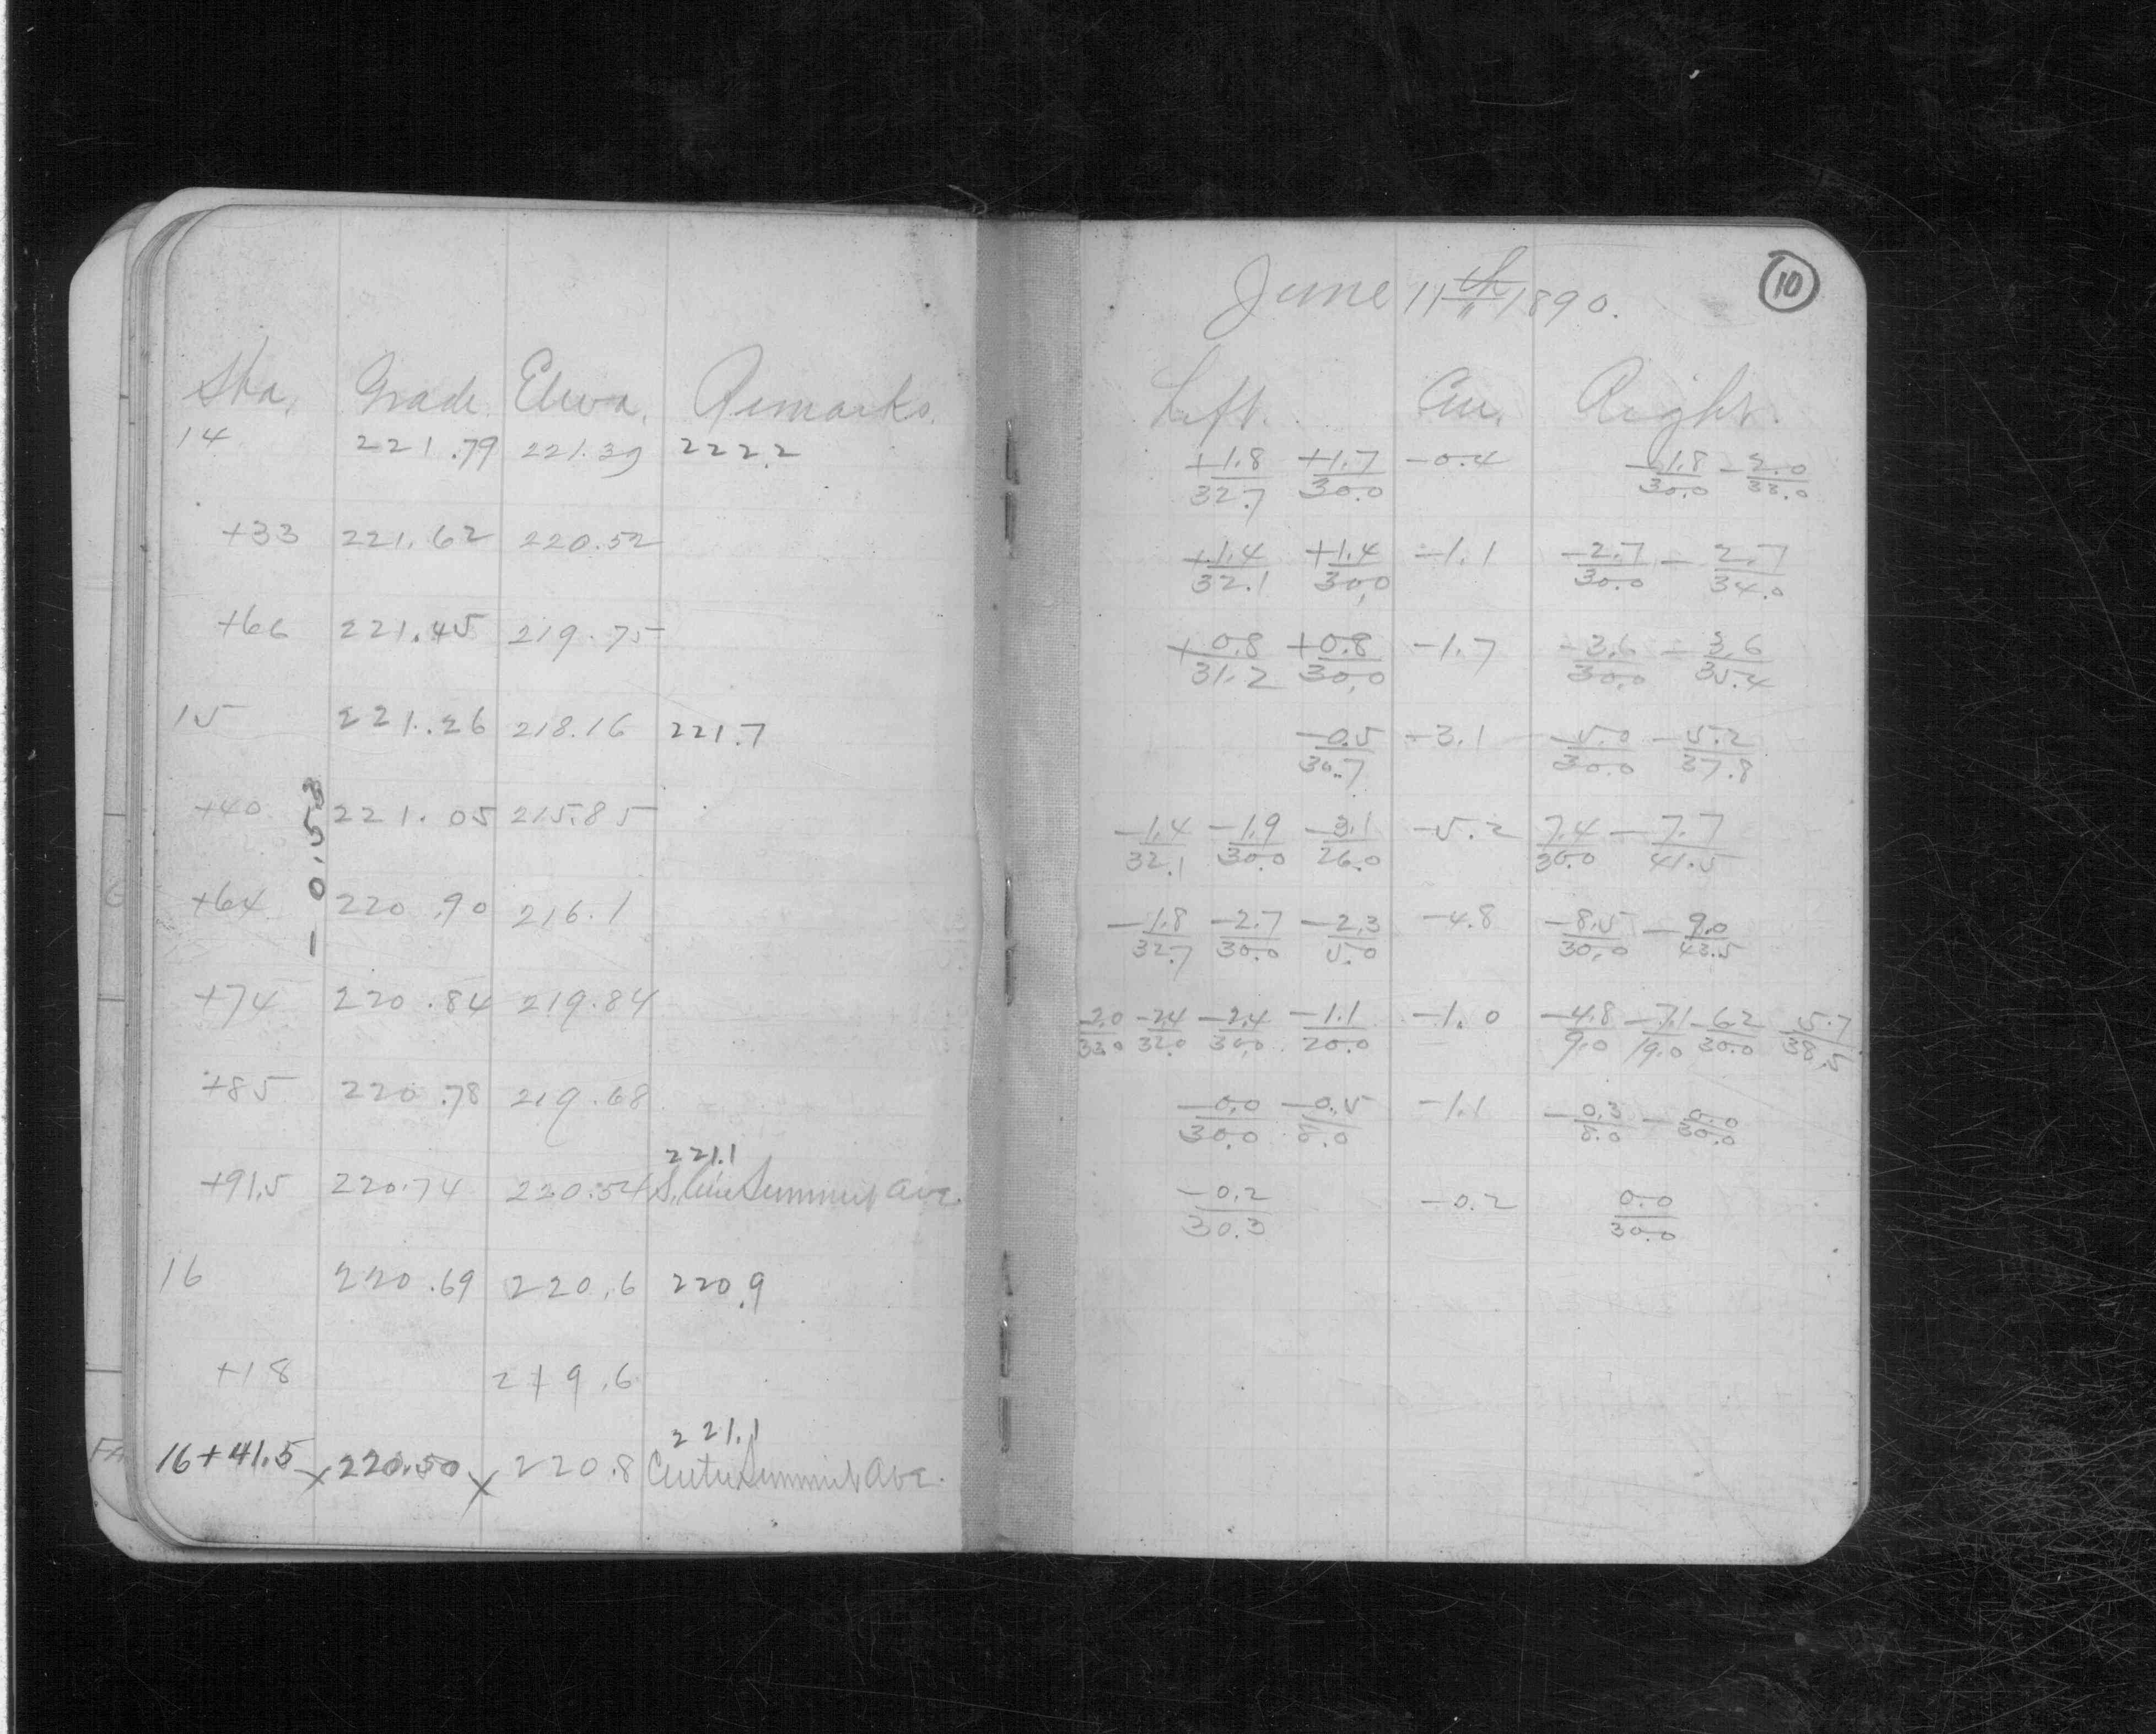 Sta. Grade Eleva. Remarks.
14 221.79 221.39 222.2
+33 221.62 220.52
+66 221.45 219.75
15 221.26 218.16 221.7
+40 221.05 215.85
- 0.53
+64 220.90 216.1
+74 220.84 219.84
+85 220.78 219.68
221.1
+91.5 220.74 220.54 S. line Summit Ave.
16 220.69 220.6 220.9
+18 219.6
221.1
16+41.5 x 220.50 x 220.8 Center Summit Ave.
10
June 11th 1890.
Left. Cen. Right.
+1.8/32.7 +1.7/30.0 -0.4 -1.8/30.0 -2.0/33.0
+1.4/32.1 +1.4/30.0 -1.1 -2.7/30.0 -2.7/34.0
+0.8/31.2 +0.8/30.0 -1.7 -3.6/30.0 -3.6/35.4
-0.5/30.7 -3.1 -5.0/30.0 -5.2/37.8
-1.4/32.1 -1.9/30.0 -3.1/26.0 -5.2 7.4/30.0 -7.7/41.5
-1.8/32.7 -2.7/30.0 -2.3/5.0 -4.8 -8.5/30.0 -9.0/43.5
-2.0/33.0 -2.4/32.0 -2.4/30.0 -1.1/20.0 -1.0 -4.8/9.0 -7.1/19.0 -6.2/30.0 5.7/38.5
-0.0/30.0 -0.5/8.0 -1.1 -0.3/8.0 -0.0/30.0
-0.2/30.3 -0.2 0.0/30.0